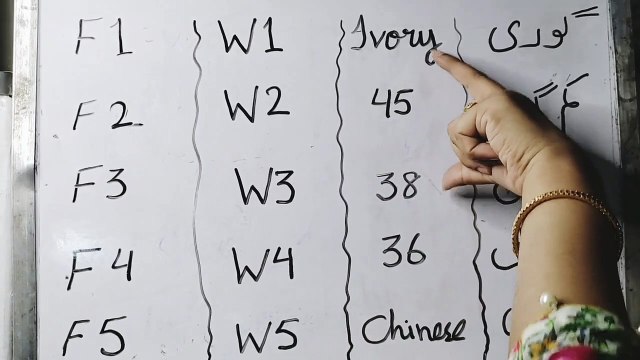 F1 W1 Ivory گوری
F2 W2 45
F3 W3 38
F4 W4 36
F5 W5 Chinese